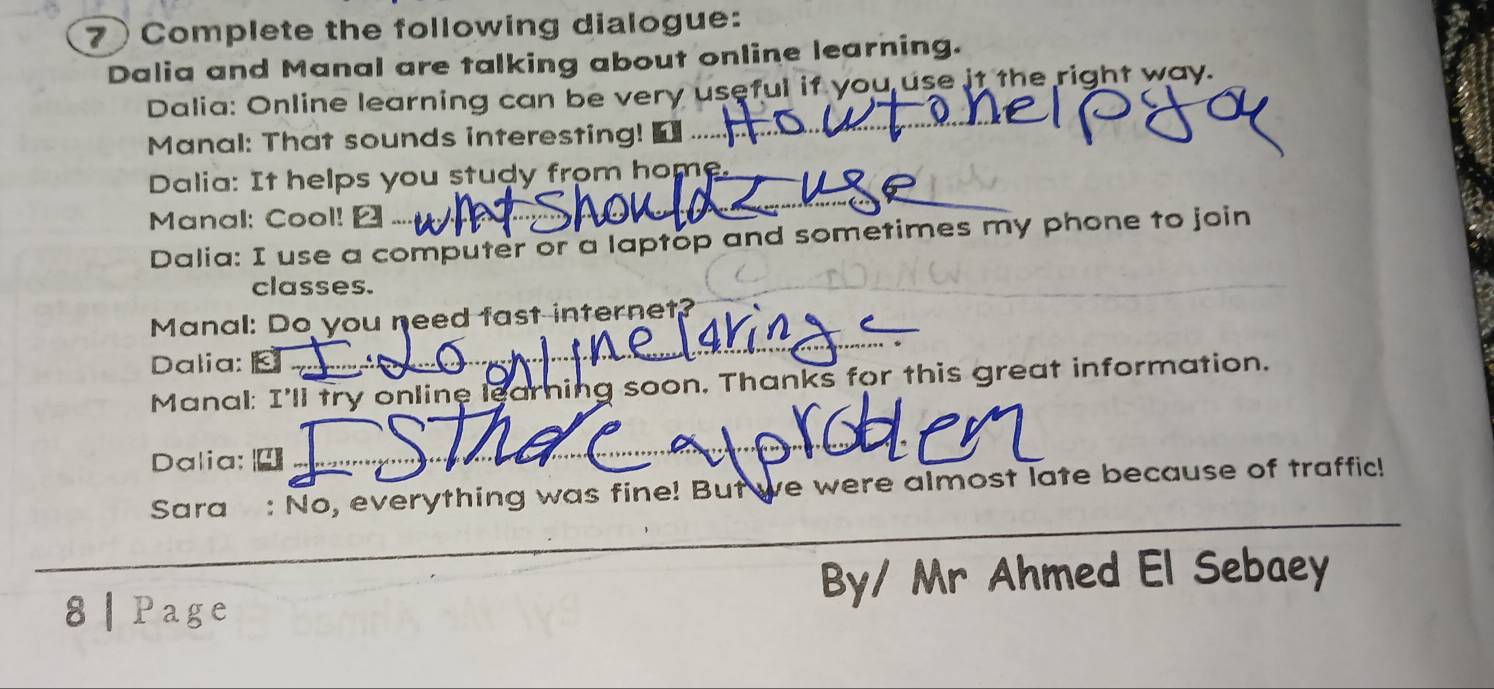 7 Complete the following dialogue:
Dalia and Manal are talking about online learning.
Dalia: Online learning can be very useful if you use it the right way.
Manal: That sounds interesting! 1 How to help you
Dalia: It helps you study from home.
Manal: Cool! 2 what should I use
Dalia: I use a computer or a laptop and sometimes my phone to join
classes.
Manal: Do you need fast internet?
Dalia: 3 I do online laring
Manal: I'll try online learning soon. Thanks for this great information.
Dalia: 4 Is there a problem
Sara : No, everything was fine! But we were almost late because of traffic!
By/ Mr Ahmed El Sebaey
8 | Page